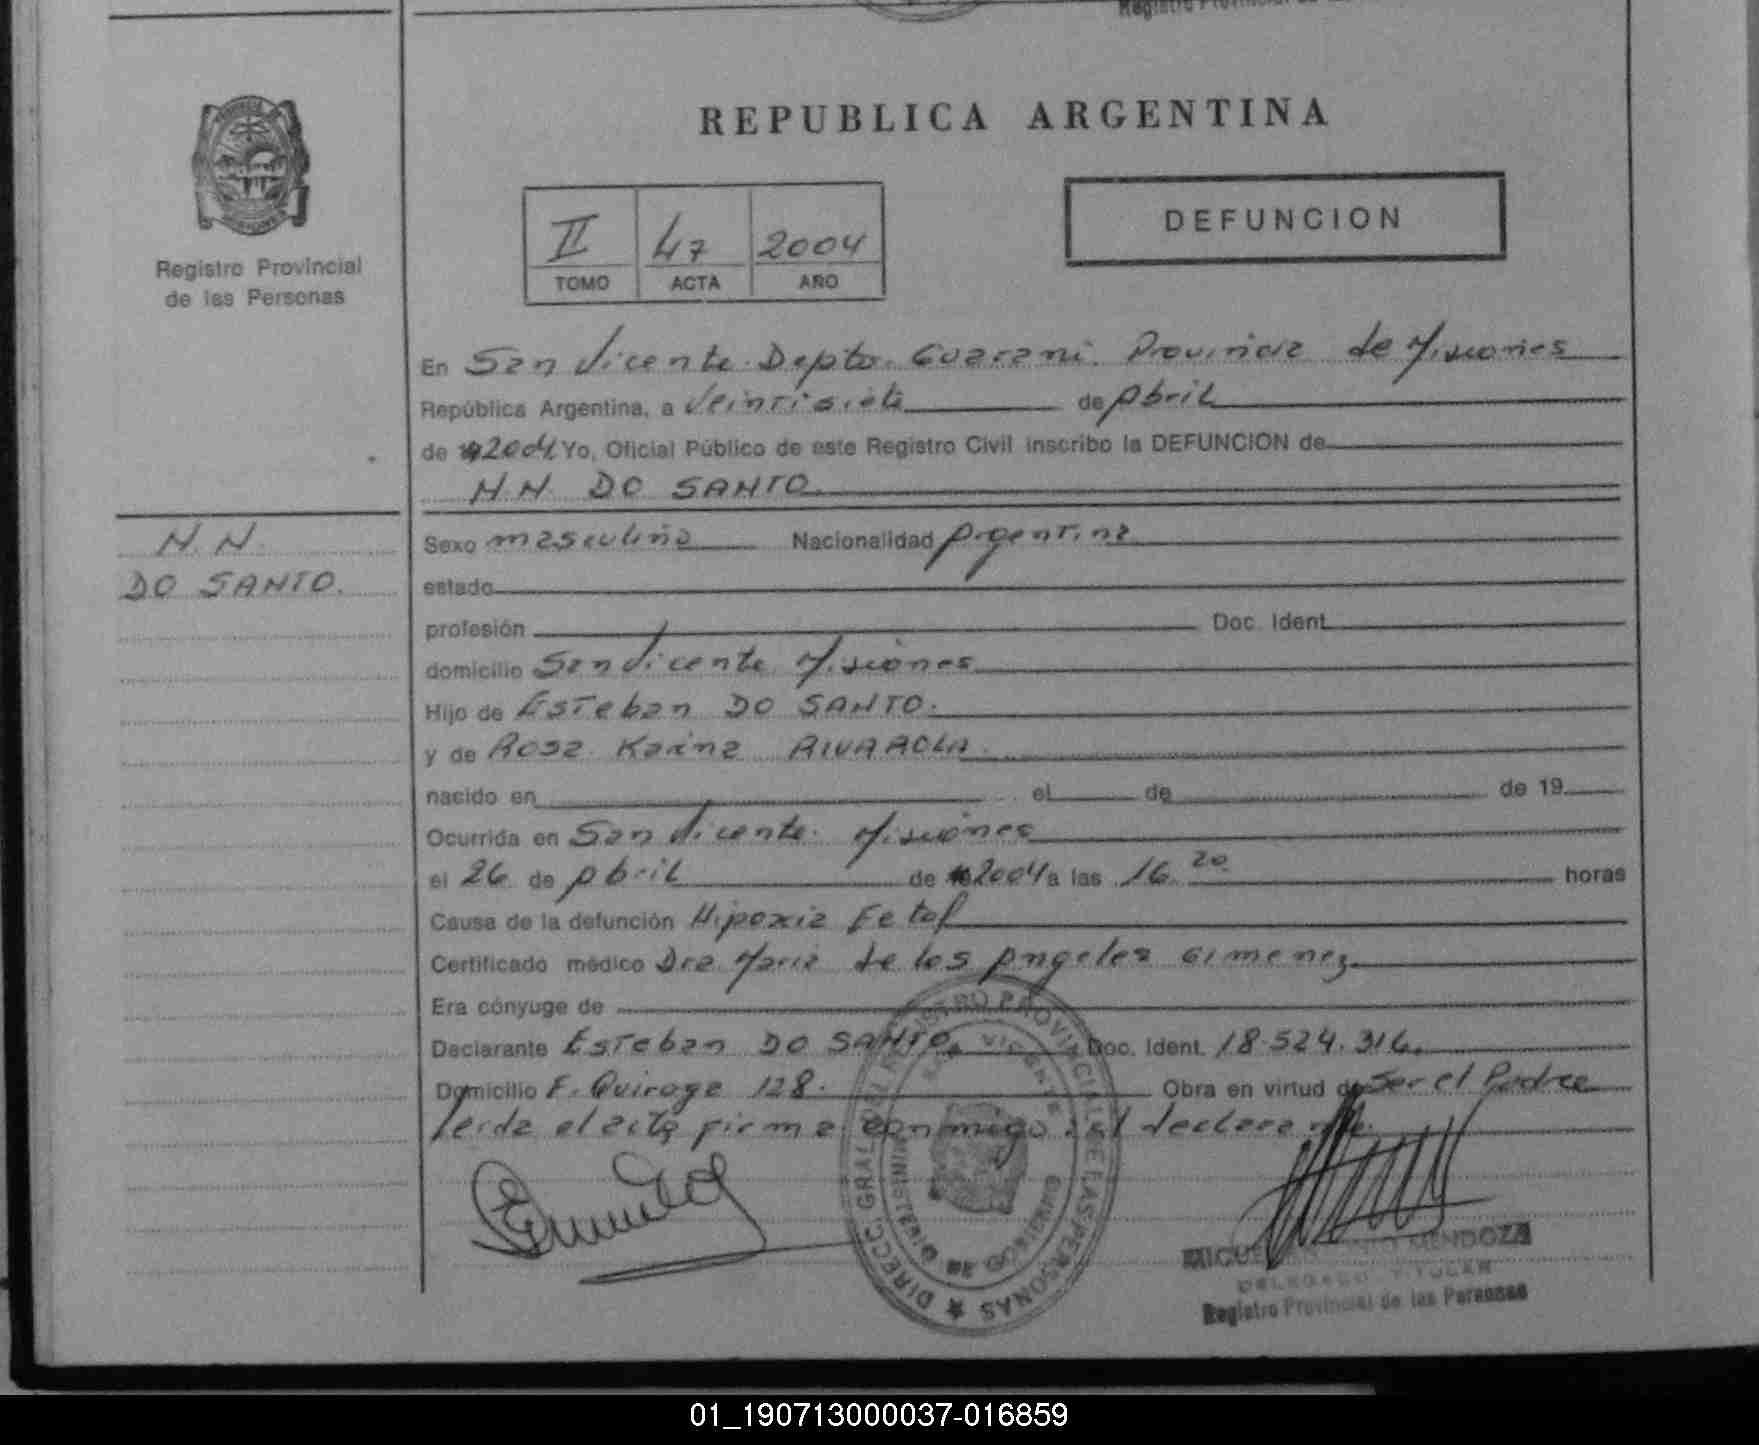 Registro Provincial
REPUBLICA ARGENTINA
Registro Provincial
de las Personas
II 47 2004
TOMO ACTA AÑO
DEFUNCION
En San Vicente. Depto. Guarani. Provincia de Misiones
República Argentina, a Veintisiete de Abril
de 2004 Yo, Oficial Público de este Registro Civil inscribo la DEFUNCION de
N.N. DO SANTO.
N. N.
DO SANTO.
Sexo masculino Nacionalidad Argentina
estado
profesión Doc. Ident.
domicilio San Vicente Misiones
Hijo de Esteban DO SANTO.
y de Rosa Karina RIVAROLA.
nacido en el de de 19
Ocurrida en San Vicente. Misiones
el 26 de Abril de 2004 a las 16.20 horas
Causa de la defunción Hipoxia Fetal
Certificado médico Dra. Maria de los Angeles Gimenez
Era cónyuge de
Declarante Esteban DO SANTO. Doc. Ident. 18.524.316.
Domicilio F. Quiroga 128. Obra en virtud de Ser el Padre
leida el acta firma conmigo el declarante.
DIRECC. GRAL. DEL REGISTRO PROVINCIAL DE LAS PERSONAS
SAN VICENTE
MINISTERIO DE GOBIERNO
MIGUEL MENDOZA
DELEGADO TITULAR
Registro Provincial de las Personas
01_190713000037-016859